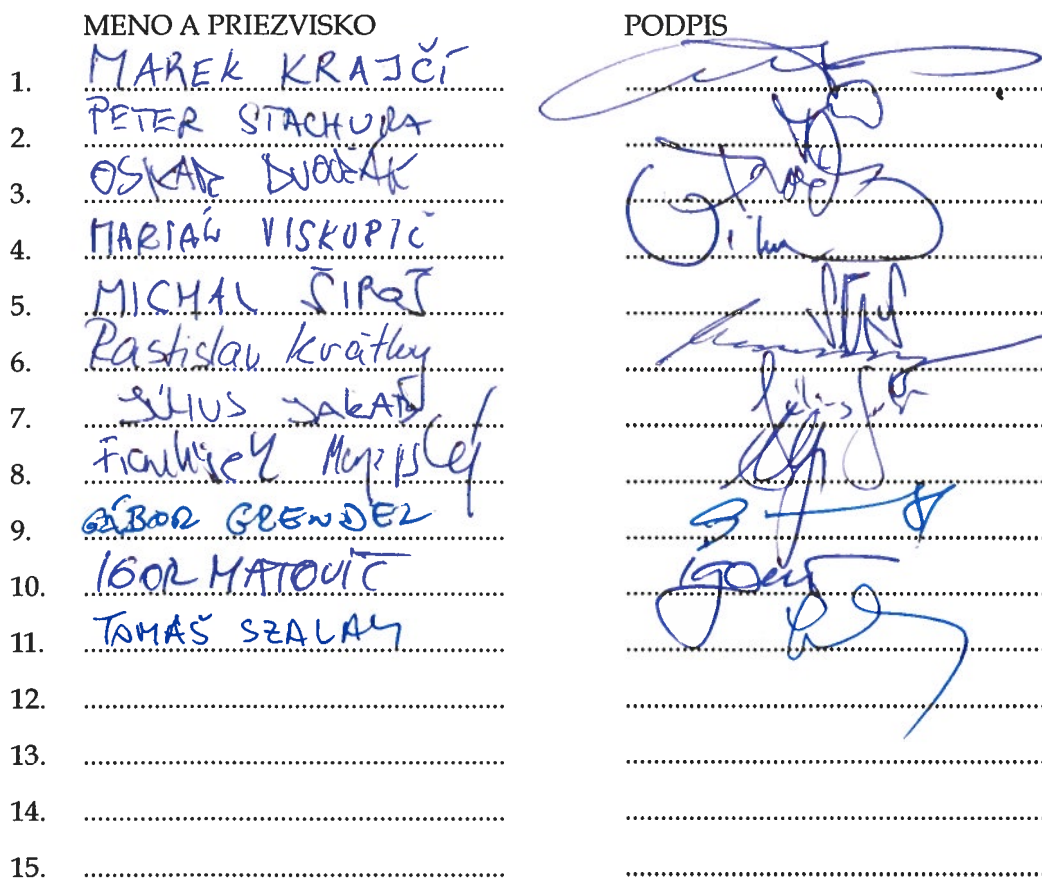 MENO A PRIEZVISKO PODPIS
1. MAREK KRAJČÍ
2. PETER STACHURA
3. OSKAR DVOŘÁK
4. MARIÁN VISKUPIČ
5. MICHAL ŠIPOŠ
6. Rastislav Krátky
7. JÚLIUS JAKAB
8. František
9. GÁBOR GRENDEL
10. IGOR MATOVIČ
11. TOMÁŠ SZALAY
12.
13.
14.
15.